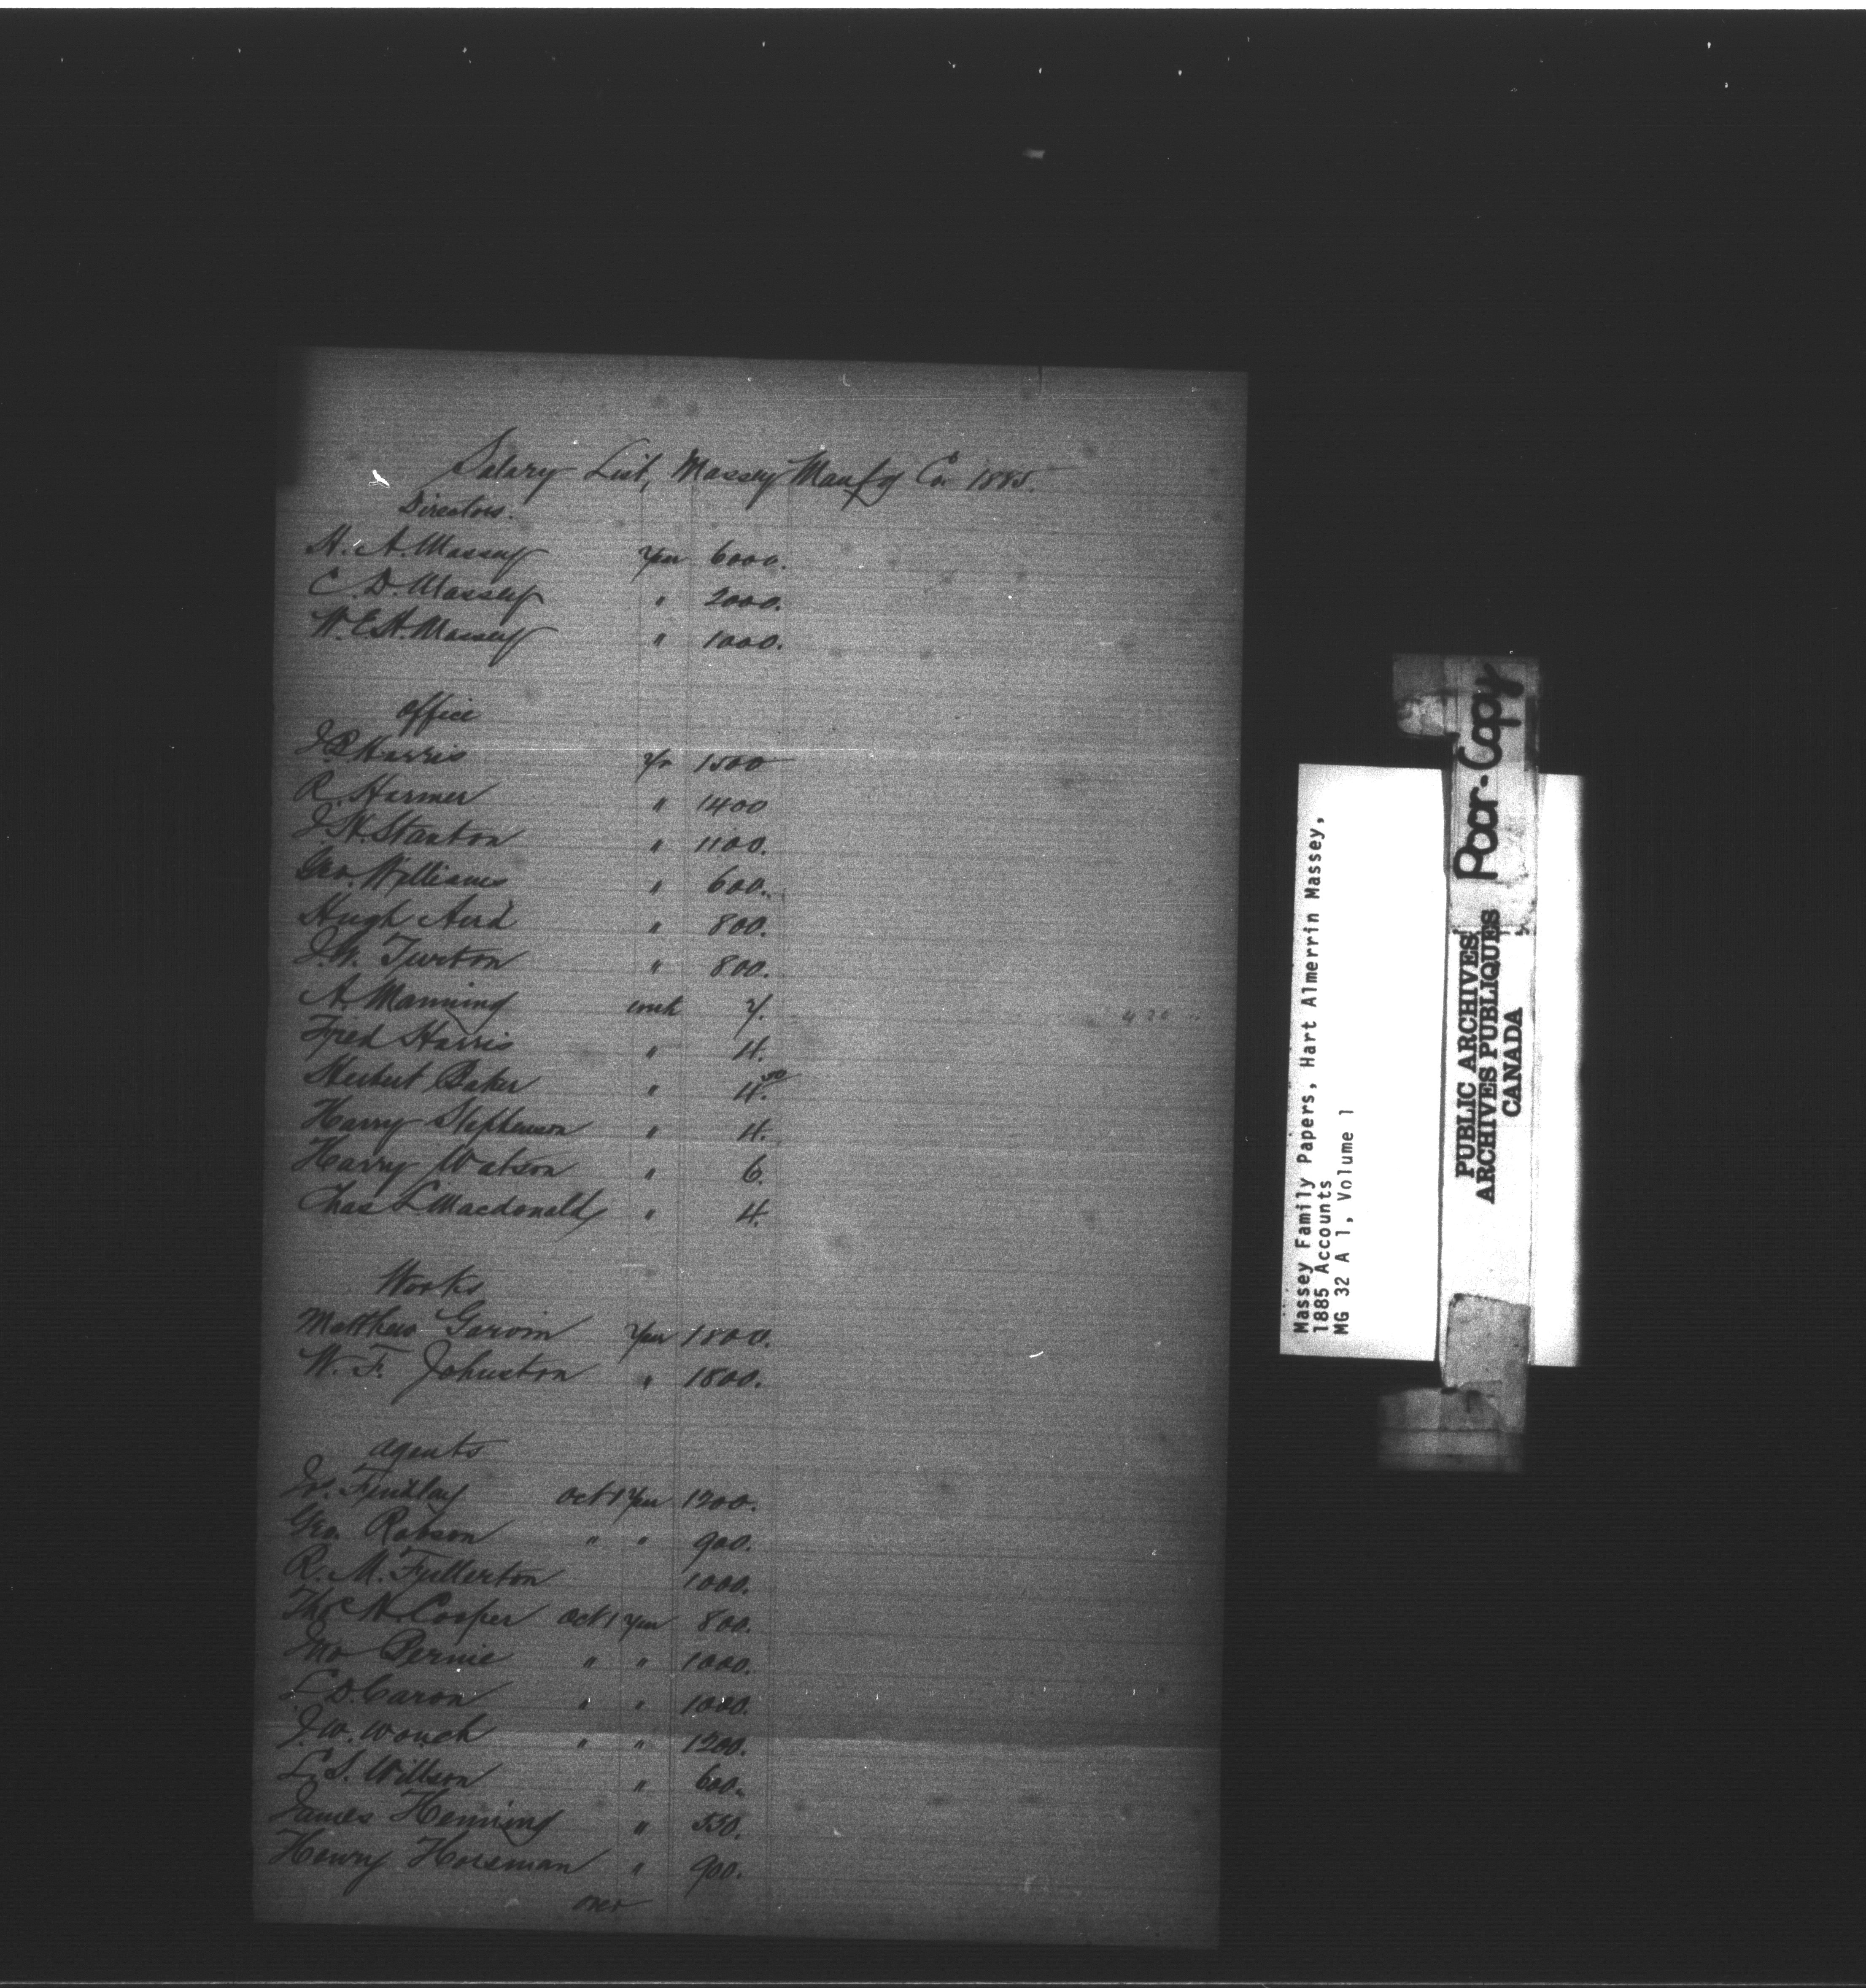 Salary List, Massey Manfg Co. 1885.
Directors.
H. A. Massey year 6000.
C. D. Massey " 2000.
W. E. H. Massey " 1000.
Office
J. P. Harris yr 1500
R. Harmer " 1400
J. H. Stanton " 1100.
Geo. Williams " 600.
Hugh Aird " 800.
J. W. Turton " 800.
A. Manning week 7.
Fred Harris " 4.
Herbert Baker " 4.50
Harry Stephenson " 4.
Harry Watson " 6.
Chas L Macdonald " 4.
Works
Matthew Garvin year 1800.
W. F. Johnston " 1800.
Agents
Findlay Oct 1 year 1200.
Geo. Robson " " 900.
R. M. Fullerton 1000.
Thos N Cooper Oct 1 year 800.
Jno Bernie " " 1000.
L D. Caron " " 1000.
J. W. Wouch " " 1200.
L. S. Willson " 600.
James Henning " 550.
Henry Horsman " 900.
over
Massey Family Papers, Hart Almerrin Massey,
1885 Accounts
MG 32 A 1, Volume 1
PUBLIC ARCHIVES
ARCHIVES PUBLIQUES
CANADA
Poor-Copy